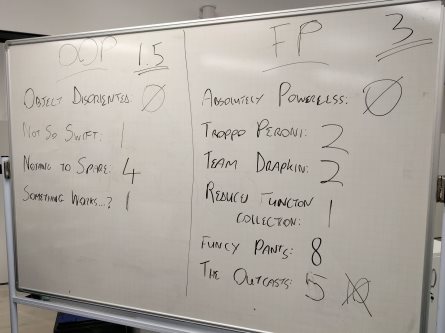 OOP 1.5
OBJECT DISORIENTED: 0
NOT SO SWIFT: 1
NOTHING TO SPARE: 4
SOMETHING WORKS...? 1
FP 3
ABSOLUTELY POWERLESS: 0
TROPPO PERONI: 2
TEAM DRAPKIN: 2
REDUCED FUNCTION
COLLECTION: 1
FUNCY PANTS: 8
THE OUTCASTS: 5